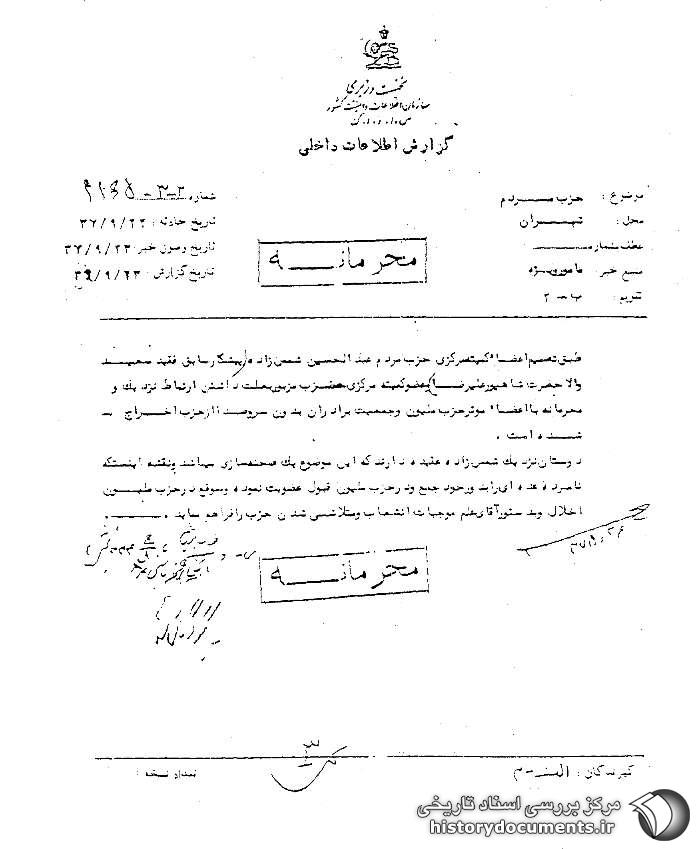 نخست وزیری
سازمان اطلاعات و امنیت کشور
س.ا.و.ا.ک
گزارش اطلاعات داخلی
موضوع : حزب مردم
محل : تهران
عطف بشماره
منبع خبر : مامور ویژه
تقویم : ب - ۲
شماره ۳-۲
تاریخ حادثه : ۳۷/۹/۲۲
تاریخ وصول خبر : ۳۷/۹/۲۳
تاریخ گزارش : ۳۷/۹/۲۳
محرمانه
طبق تصمیم اعضاء کمیته مرکزی حزب مردم عبدالحسین شمس زاده (پیشکار سابق فقید سعید
والا حضرت شاهپور علیرضا) عضو کمیته مرکزی حزب مزبور بعلت داشتن ارتباط نزدیک و
محرمانه با اعضاء موثر حزب ملیون و جمعیت برادران بدون سر و صدا از حزب اخراج
شده است .
دوستان نزدیک شمس زاده عقیده دارند که این موضوع یک صحنه سازی میباشد و نقشه اینستکه
نامبرده عده ای را بدور خود جمع و در حزب ملیون قبول عضویت نموده و بموقع در حزب ملیون
اخلال و بدستور آقای علم موجبات انشعاب و متلاشی شدن حزب را فراهم نماید .
محرمانه
۳
گیرندگان : الف - م
تعداد نسخه :
مرکز بررسی اسناد تاریخی
historydocuments.ir